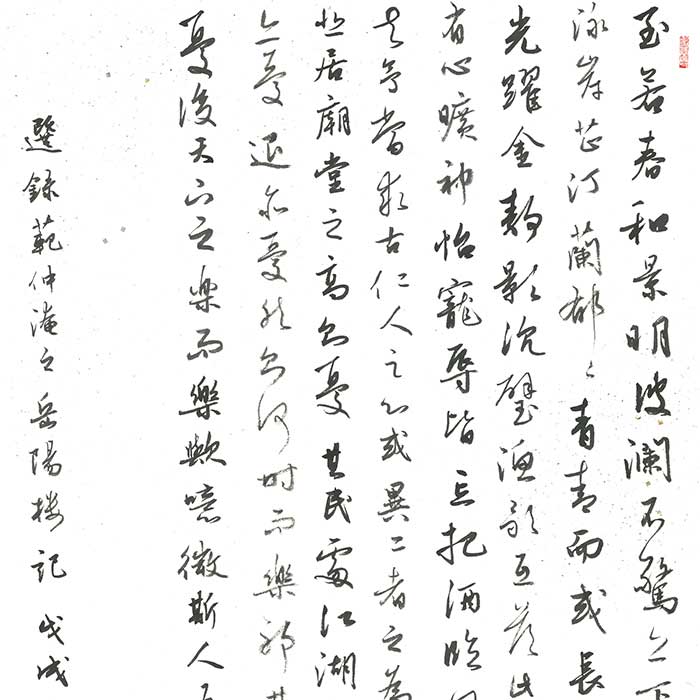 至若春和景明波瀾不驚上下
泳岸芷汀蘭郁々青青而或長
光躍金靜影沉璧漁歌互答此
有心曠神怡寵辱皆忘把酒臨
夫予嘗求古仁人之心或異二者之為
悲居廟堂之高則憂其民處江湖
亦憂退亦憂然則何時而樂耶其
憂後天下之樂而樂歟噫微斯人
選錄範仲淹之岳陽楼記 戊戌